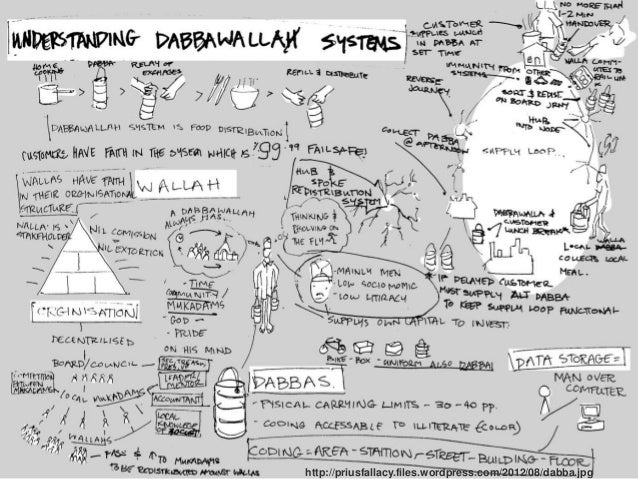 UNDERSTANDING DABBAWALLAH SYSTEMS
HOME COOKING
DABBA
RELAY OF EXCHANGES
REFILL & DISTRIBUTE
DABBAWALLAH SYSTEM IS FOOD DISTRIBUTION
CUSTOMERS HAVE FAITH IN THE SYSEM WHICH IS '99.99 FAILSAFE!
WALLAS HAVE FAITH
IN THEIR ORGINISATIONAL
STRUCTURE
WALLAH
WALLA IS
STAKEHOLDER
NIL COMISSION
NIL EXTORTION
ORGINISATION
DECENTRILISED
BOARD/COUNCIL
SEC, TREAS,
PRES, VP
COMPETITION
BETWEEN
MAKADAMS
LOCAL MUKADAMS
LEADER/
MENTOR
ACCOUNTANT
LOCAL
KNOWLEDGE
OF
WALLAHS
PASS & ↑ TO MUKADAMS
TO BE REDISTRIBUTED AMOUNGT WALLAS
A DABBAWALLAH
ALWAYS HAS...
- TIME
COMMUNITY/
MUKADAMS
- GOD
- PRIDE
ON HIS MIND
HUB &
SPOKE
REDISTRIBUTION
SYSTEM
THINKING &
EVOLVING ON
THE FLY
- MAINLY MEN
- LOW SOCIOMOMIC
- LOW LITIRACY
SUPPLYS OWN CAPITAL TO INVEST.
BIKE - BOX - UNIFORM ALSO DABBA
DABBAS.
- PYSICAL CARRYING LIMITS - 30-40 pp.
- CODING ACCESSABLE TO ILLITERATE (COLOR)
CODING = AREA - STAITION - STREET - BUILDING - FLOOR
DATA STORAGE =
MAN OVER
COMPUTER
CUSTOMER
SUPPLIES LUNCH
IN DABBA AT
SET TIME
NO MORE THAN
1-2 MIN
HANDOVER
IMMUNITY FROM OTHER
SYSTEMS
WALLA COMM-
UTES TO
REVERSE
JOURNEY
SORT & REDIST
ON BOARD JRNY
HUB
INTO NODE
COLLECT DABBA
@ AFTERNOON
SUPPLY LOOP...
DABBAWALLA &
CUSTOMER
LUNCH BREAK
WALLA
LOCAL DABBA
COLLECTS LOCAL
MEAL.
* IF DELAYED CUSTOMER
MUST SUPPLY ALT DABBA
TO KEEP SUPPLY LOOP FUNCTIONAL
http://priusfallacy.files.wordpress.com/2012/08/dabba.jpg